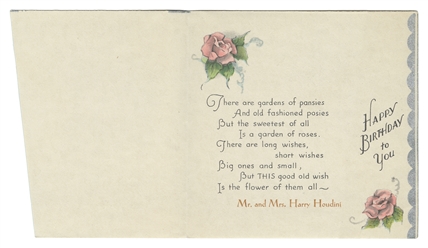 There are gardens of pansies
And old fashioned posies
But the sweetest of all
Is a garden of roses.
There are long wishes,
short wishes
Big ones and small,
But THIS good old wish
Is the flower of them all~
Mr. and Mrs. Harry Houdini
HAPPY
BIRTHDAY
to
YOU